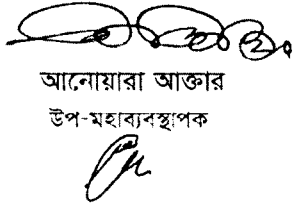 আনোয়ারা আক্তার
উপ-মহাব্যবস্থাপক